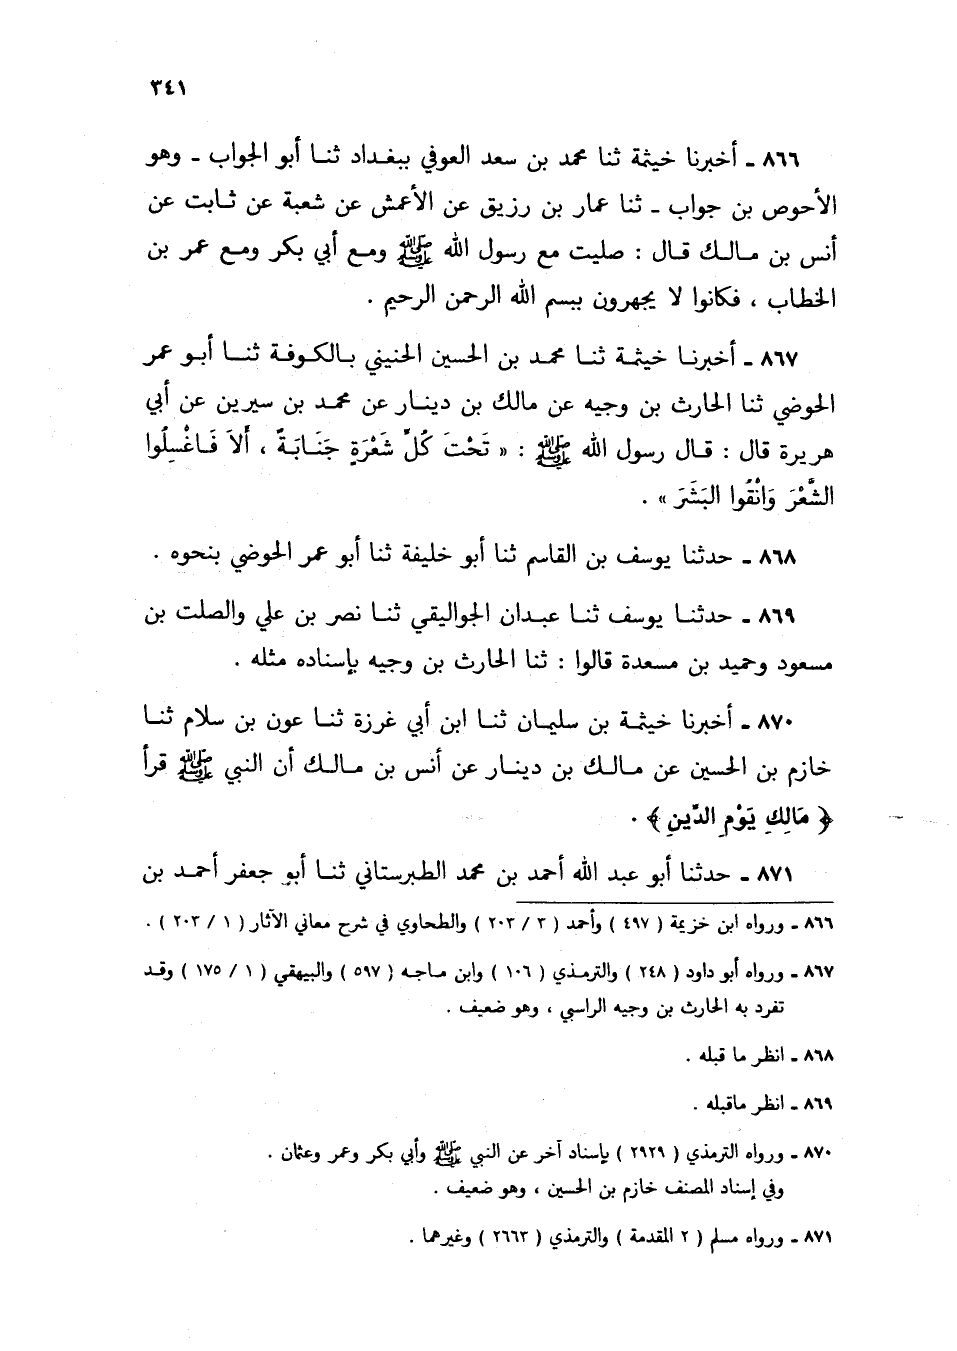 ٣٤١
٨٦٦ ـ أخبرنا خيثمة ثنا محمد بن سعد العوفي ببغداد ثنا أبو الجواب ـ وهو
الأحوص بن جواب ـ ثنا عمار بن رزيق عن الأعمش عن شعبة عن ثابت عن
أنس بن مالك قال : صليت مع رسول الله ﷺ ومع أبي بكر ومع عمر بن
الخطاب ، فكانوا لا يجهرون ببسم الله الرحمن الرحيم .
٨٦٧ ـ أخبرنا خيثمة ثنا محمد بن الحسين الحنيني بالكوفة ثنا أبو عمر
الحوضي ثنا الحارث بن وجيه عن مالك بن دينار عن محمد بن سيرين عن أبي
هريرة قال : قال رسول الله ﷺ : « تَحْتَ كُلِّ شَعْرَةٍ جَنَابَةٌ ، أَلاَ فَاغْسِلُوا
الشَّعْرَ وَانْقُوا البَشَرَ » .
٨٦٨ ـ حدثنا يوسف بن القاسم ثنا أبو خليفة ثنا أبو عمر الحوضي بنحوه .
٨٦٩ ـ حدثنا يوسف ثنا عبدان الجواليقي ثنا نصر بن علي والصلت بن
مسعود وحميد بن مسعدة قالوا : ثنا الحارث بن وجيه بإسناده مثله .
٨٧٠ ـ أخبرنا خيثمة بن سليمان ثنا ابن أبي غرزة ثنا عون بن سلام ثنا
خازم بن الحسين عن مالك بن دينار عن أنس بن مالك أن النبي ﷺ قرأ
﴿ مَالِكِ يَوْمِ الدِّينِ ﴾ .
٨٧١ ـ حدثنا أبو عبد الله أحمد بن محمد الطبرستاني ثنا أبو جعفر أحمد بن
٨٦٦ ـ ورواه ابن خزيمة ( ٤٩٧ ) وأحمد ( ٣ / ٢٠٣ ) والطحاوي في شرح معاني الآثار ( ١ / ٢٠٣ ) .
٨٦٧ ـ ورواه أبو داود ( ٢٤٨ ) والترمذي ( ١٠٦ ) وابن ماجه ( ٥٩٧ ) والبيهقي ( ١ / ١٧٥ ) وقد
تفرد به الحارث بن وجيه الراسبي ، وهو ضعيف .
٨٦٨ ـ انظر ما قبله .
٨٦٩ ـ انظر ماقبله .
٨٧٠ ـ ورواه الترمذي ( ٢٩٢٩ ) بإسناد آخر عن النبي ﷺ وأبي بكر وعمر وعثمان .
وفي إسناد المصنف خازم بن الحسين ، وهو ضعيف .
٨٧١ ـ ورواه مسلم ( ٢ المقدمة ) والترمذي ( ٢٦٦٣ ) وغيرهما .